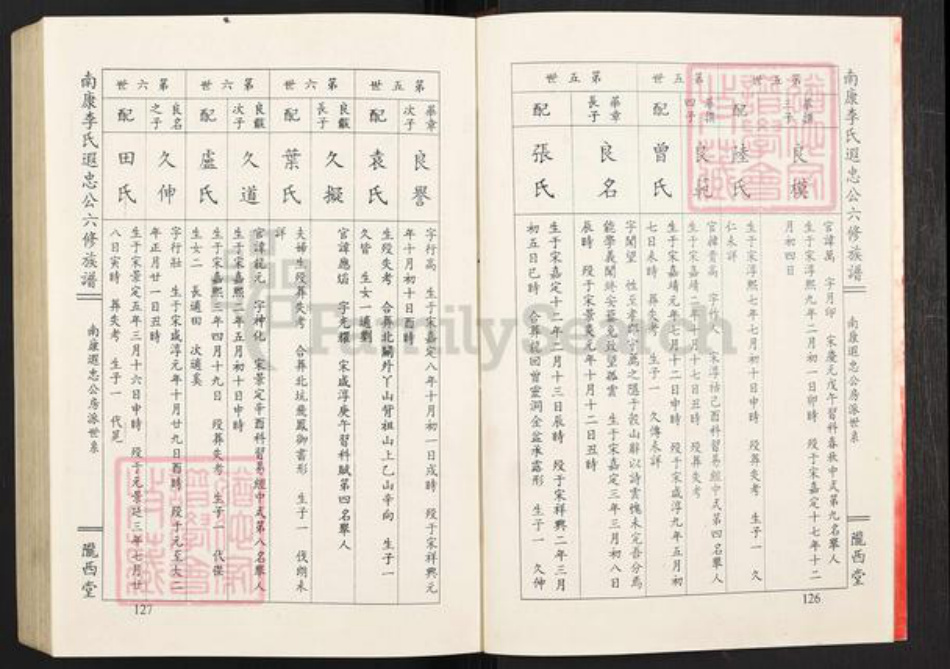 南康李氏遐忠公六修族譜
南康遐忠公房派世系
隴西堂
126
第五世
三子
良模
官諱萬 字月印 宋慶元戊午習科春秋中式第九名舉人
生于宋淳熙九年二月初一日卯時 歿于宋嘉定十七年十二
月初四日
配
陸氏
生于宋淳熙七年七月初十日申時 歿葬失考 生子一 久
仁未詳
第五世
四子
良範
生于宋嘉靖二年十月十七日丑時 歿葬失考
配
曾氏
生于宋嘉靖元年七月十二日申時 歿于宋咸淳九年五月初
七日未時 葬失考 生子一 久傳未詳
第五世
華章
長子
良名
字聞望
生于宋嘉定三年三月初八日
辰時 歿于宋景炎元年十月十二日丑時
配
張氏
生于宋嘉定十二年八月十三日辰時 歿于宋祥興二年三月
初五日己時 合葬龍回曾靈洞金盆承露形 生子一 久伸
第五世
華章
次子
良譽
字行高 生于宋嘉定八年十月初一日戌時 歿于宋祥興元
年十月初十日酉時
配
袁氏
生歿失考 合葬北關外丫山背祖山上乙山辛向 生子一
久皆 生女一適劉
第六世
良獻
長子
久擬
官諱應炤 字光耀 宋咸淳庚午習科賦第四名舉人
配
葉氏
夫婦生歿葬失考 合葬北坑飛鳳御書形 生子一 伐朗未
詳
第六世
良獻
次子
久道
官諱龍元 字神化 宋景定辛酉科習易經中式第八名舉人
生于宋嘉熙二年五月初十日申時
配
盧氏
生于宋嘉熙三年四月十九日 歿葬失考 生子一 代傑
生女二 長適田 次適奚
第六世
良名
之子
久伸
字行壯 生于宋咸淳元年十月廿九日酉時 歿于元至大二
年正月廿一日丑時
配
田氏
生于宋景定五年三月十六日申時 歿于元景延三年七月廿
八日寅時 葬失考 生子一 代邑
南康李氏遐忠公六修族譜
南康遐忠公房派世系
隴西堂
127
FamilySearch